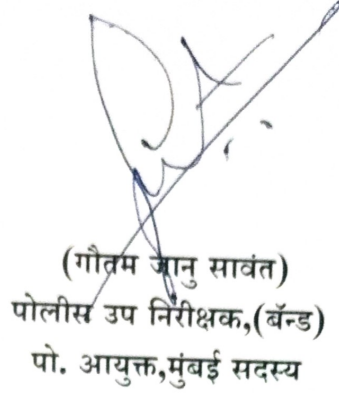 (गौतम जानु सावंत)
पोलीस उप निरीक्षक,(बॅन्ड)
पो. आयुक्त,मुंबई सदस्य